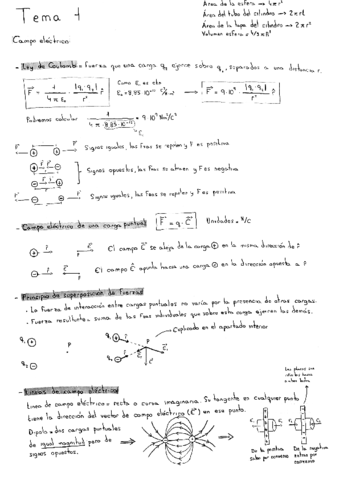 Tema 1
Área de la esfera → 4πr²
Área del tubo del cilindro → 2πrL
Área de la tapa del cilindro → 2πr²
Volumen esfera = 4/3πR³
Campo eléctrico
- Ley de Coulomb = Fuerza que una carga q₁ ejerce sobre q₂, separadas a una distancia r.
Como ε₀ es cte
Podemos calcular
= 9·10⁹ Nm²/C²
Signos iguales, las Fzas se repelen y F es positiva
Signos opuestos, las Fzas se atraen y F es negativa
Signos iguales, las Fzas se repelen y F es positiva
- Campo eléctrico de una carga puntual
Unidades = N/C
El campo E se aleja de la carga ⊕ en la misma dirección de r
El campo E apunta hacia una carga ⊖ en la dirección opuesta a r
- Principio de superposición de fuerzas
· La fuerza de interacción entre cargas puntuales no varía por la presencia de otras cargas.
· Fuerza resultante = suma de las Fzas individuales que sobre esta carga ejercen las demás.
Explicado en el apartado anterior
- Líneas de campo eléctrico
Línea de campo eléctrico = recta o curva imaginaria. Su tangente en cualquier punto
tiene la dirección del vector de campo eléctrico (E) en ese punto.
Dipolo = dos cargas puntuales
de igual magnitud pero de
signos opuestos.
De la positiva
sale por convenio
De la negativa
entra por
convenio